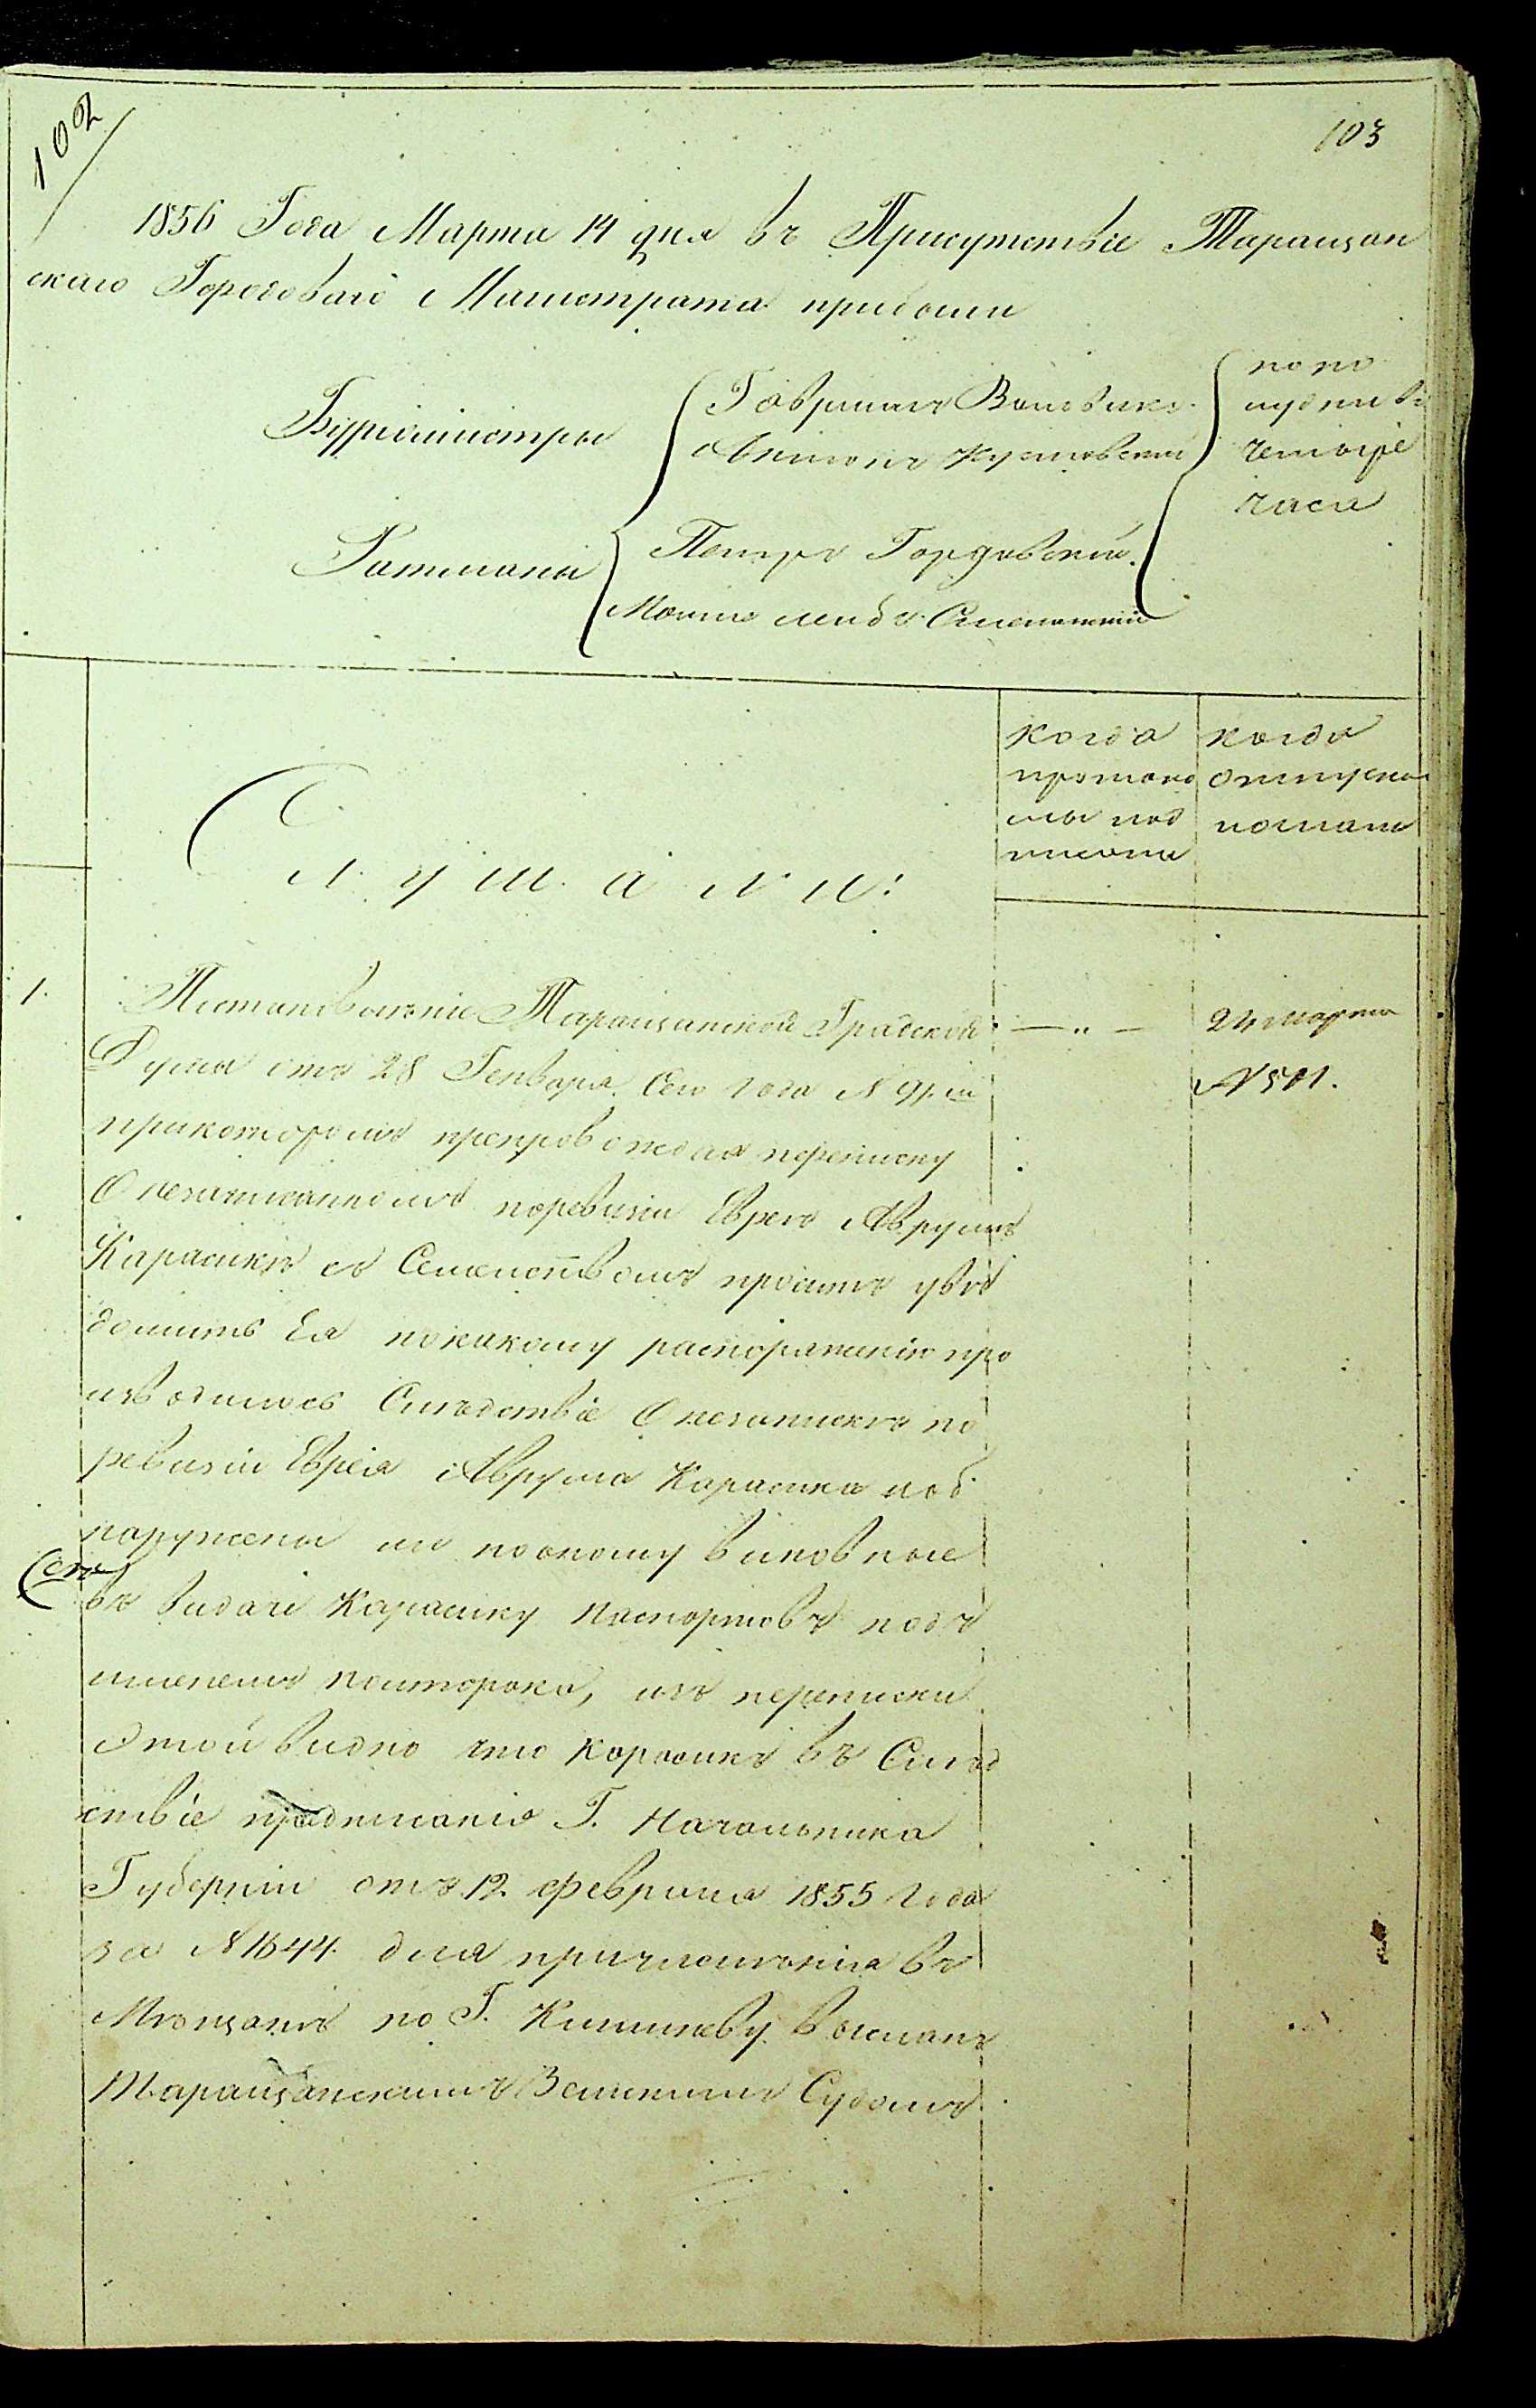 102
103
1856 Года Марта 14 дня въ Присутствіе Таращан
скаго Городоваго Магистрата прибыли
Бургомистры
Гавріилъ Воловикъ
Антонъ
Ратманы
Петръ Гордовскій
Мошко Лейбъ
по по
лудни въ
четыре
часа
Слушали:
когда
протоко
лы под
писаны
когда
отпуски
посланы
1.
Постановленіе Таращанской Градской
Думы отъ 28 Генваря Сего года N
прикоторомъ препровождая переписку
О незаписанномъ поревизіи Евреѣ Аврумѣ
Карасикѣ съ Семействомъ проситъ увѣ
домить Ея покакому распоряженію про
изводилось Слѣдствіе О незапискѣ по
ревизіи Еврея Аврума Карасика и об
наружены ли поономУ виновные
въ видачѣ Карасику паспортовъ подъ
именемъ Полторака, изъ переписки
Этой видно что Карасикъ въ Слѣд
ствіе предписанія Г. Начальника
Губерніи отъ 12 февраля 1855 года
за N 1644 для причисленія въ
Мѣщане по Г. Кишиневу высланъ
Таращанскимъ Земскимъ Судомъ
24 марта
N 511.